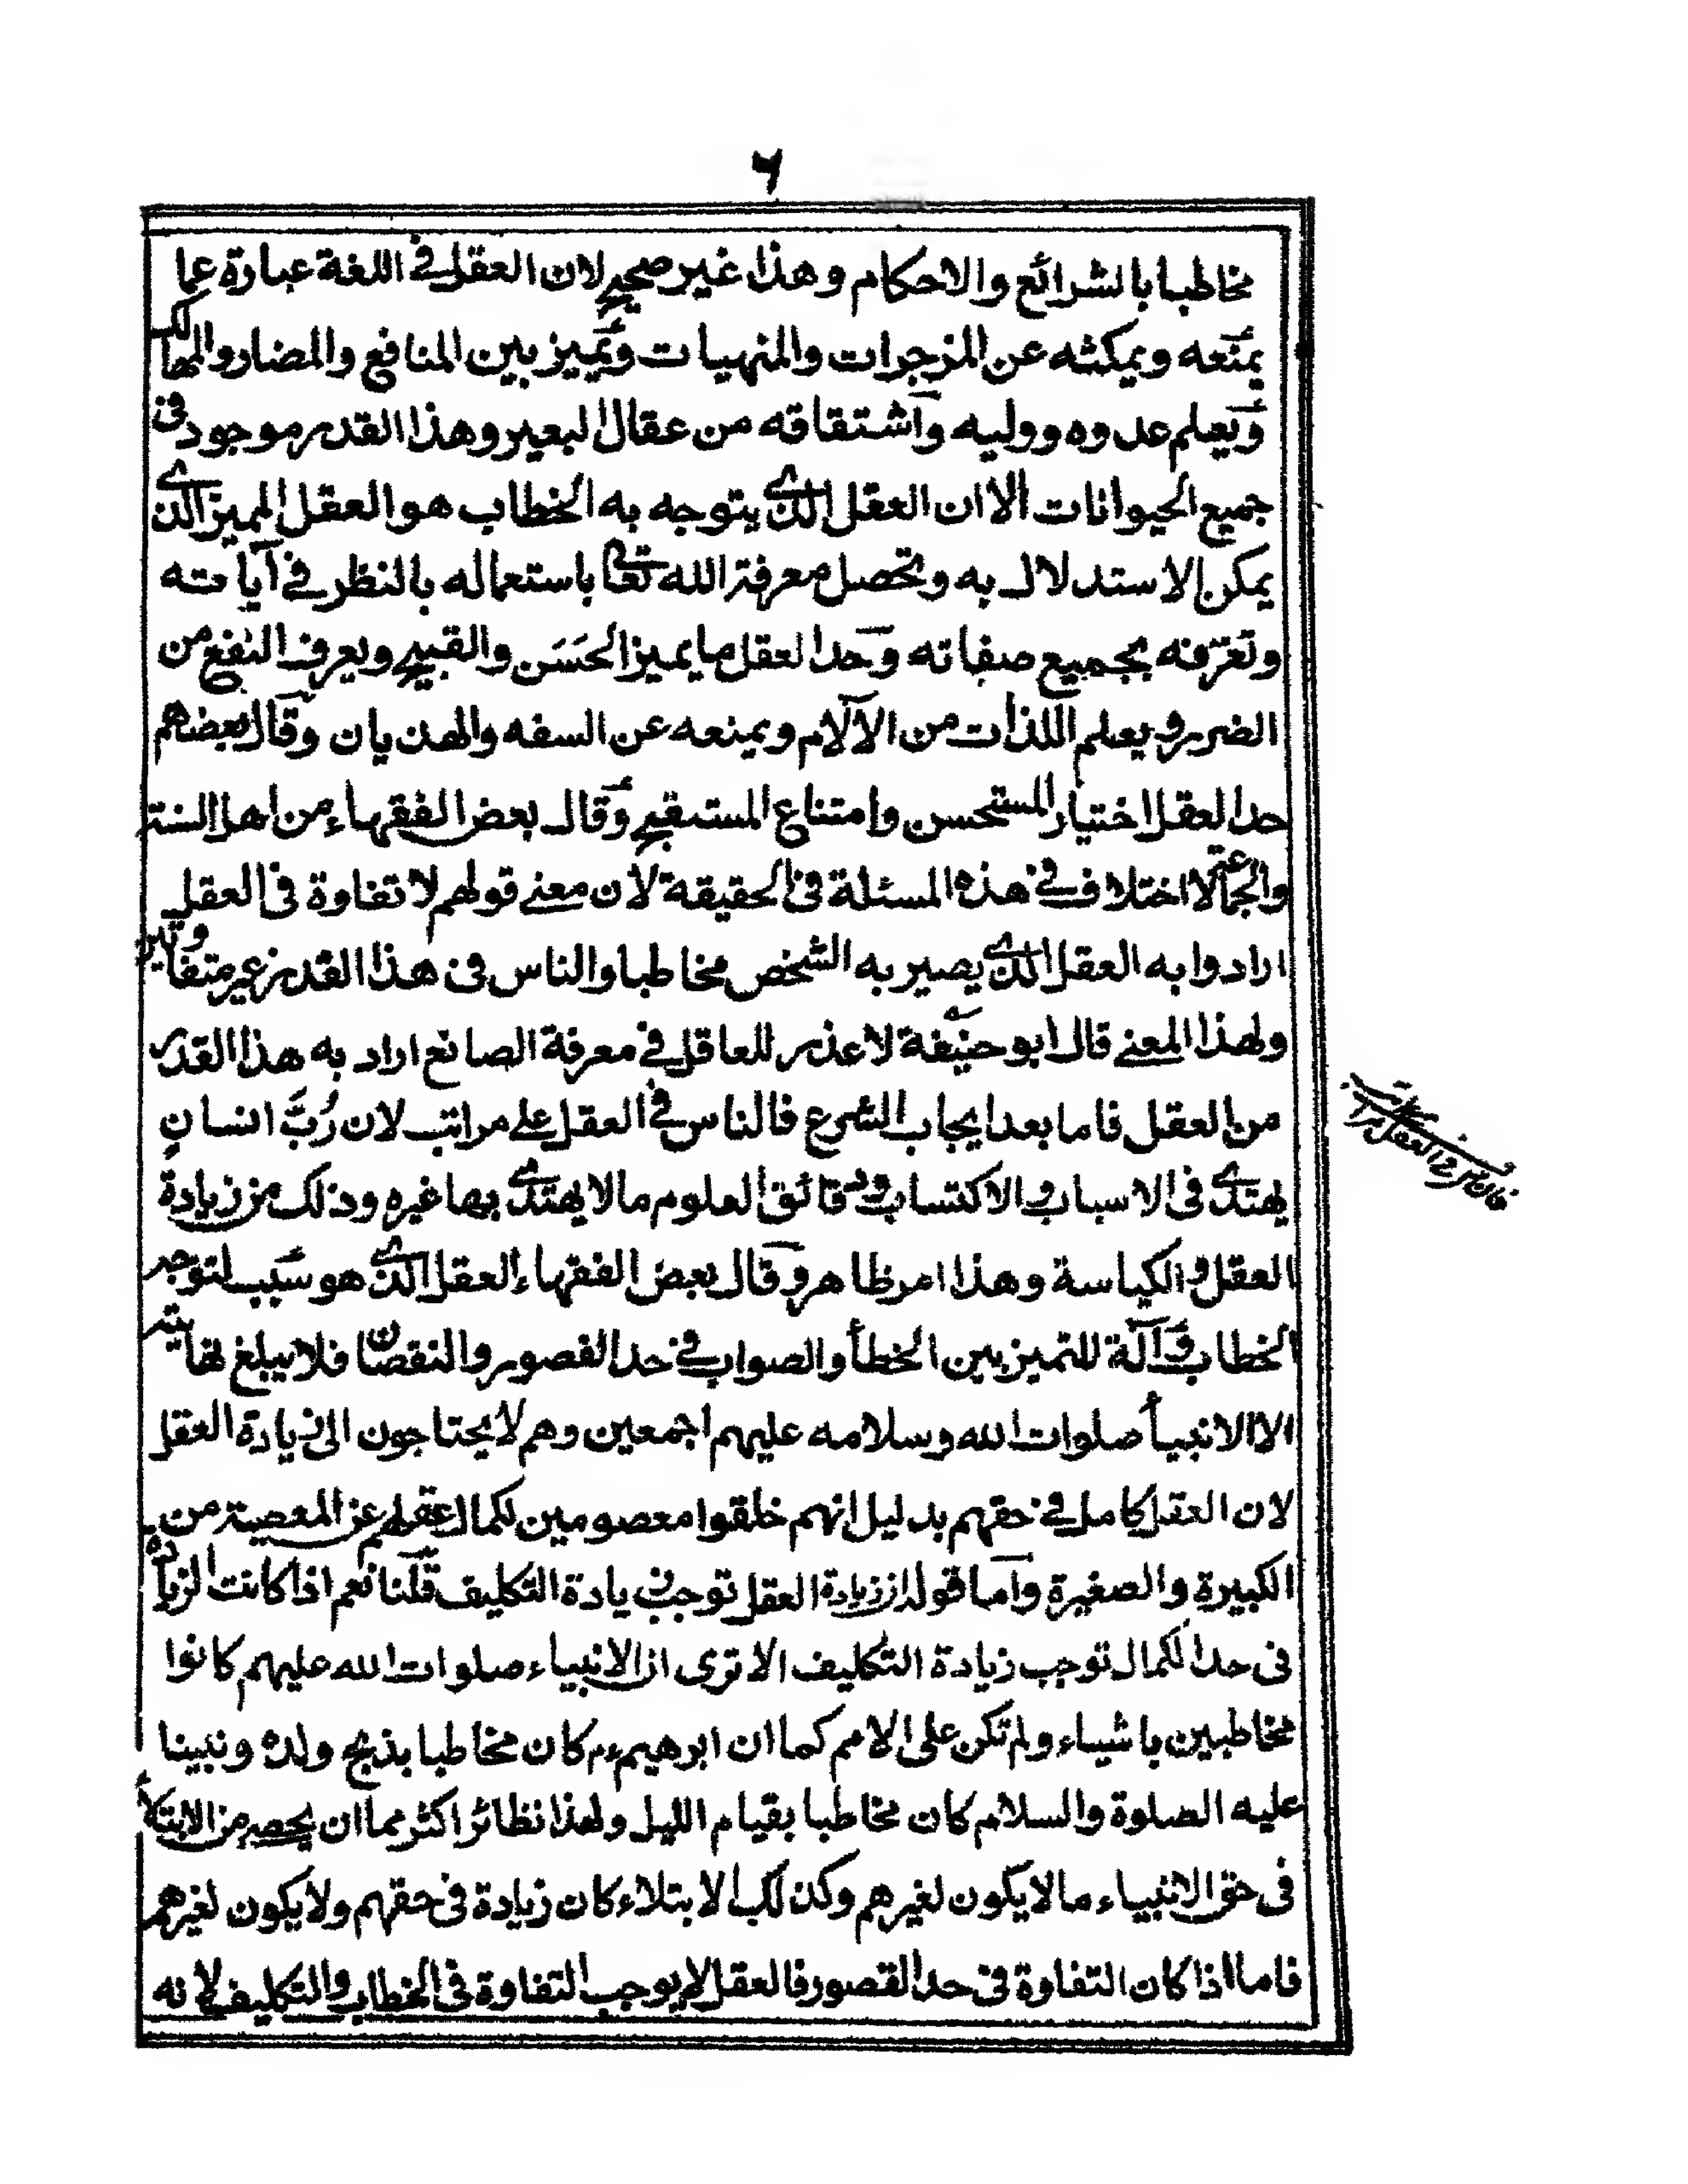 ٦
مخاطبا بالشرائع والاحكام وهذا غير صحيح لان العقل فى اللغة عبارة عما
يمنعه ويمكثه عن المزجرات والمنهيات ويميز بين المنافع والمضار والمهالك
ويعلم عدوه ووليه واشتقاقه من عقال البعير وهذا القدر موجود فى
جميع الحيوانات الا ان العقل الذى يتوجه به الخطاب هو العقل المميز الذى
يمكن الاستدلال به وتحصل معرفة الله تعا باستعماله بالنظر فى آياته
وتعرفه بجميع صفاته وحد العقل ما يميز الحَسَن والقبيح ويعرف النفع من
الضرر ويعلم اللذات من الآلام ويمنعه عن السفه والهذيان وقال بعضهم
حد العقل اختيار المستحسن وامتناع المستقبح وقال بعض الفقهاء من اهل السنة
والجماعة لا اختلاف فى هذه المسئلة فى الحقيقة لان معنى قولهم لا تفاوة فى العقل
ارادوا به العقل الذى يصير به الشخص مخاطبا والناس فى هذا القدر غير متفاوتين
ولهذا المعنى قال ابو حنيفة لا عذر للعاقل فى معرفة الصانع اراد به هذا القدر
من العقل فاما بعد ايجاب الشرع فالناس فى العقل على مراتب لان رُبَّ انسانٍ
يهتدى فى الاسباب والاكتساب ودقائق العلوم ما لا يهتدى بها غيره وذلك من زيادة
العقل والكياسة وهذا امر ظاهر وقال بعض الفقهاء العقل الذى هو سبب لتوجه
الخطاب وآلة للتميز بين الخطأ والصواب فى حد القصور والنقصان فلا يبلغ نهايته
الا الانبيأ صلوات الله وسلامه عليهم اجمعين وهم لا يحتاجون الى زيادة العقل
لان العقل كامل فى حقهم بدليل انهم خلقوا معصومين لكمال عقلهم عن المعصية من
الكبيرة والصغيرة واما قوله ان زيادة العقل توجب زيادة التكليف قلنا نعم اذا كانت الزيادة
فى حد الكمال توجب زيادة التكليف الا ترى ان الانبياء صلوات الله عليهم كانوا
مخاطبين باشياء ولم تكن على الامم كما ان ابرهيم ءم كان مخاطبا بذبح ولده ونبينا
عليه الصلوة والسلام كان مخاطبا بقيام الليل ولهذا نظائر اكثر مما ان يحصر من الابتلأ
فى حق الانبياء ما لا يكون لغيرهم وكذلك الابتلاء كان زيادة فى حقهم ولا يكون لغيرهم
فاما اذا كان التفاوة فى حد القصور فالعقل لا يوجب التفاوة فى الخطاب والتكليف لانه